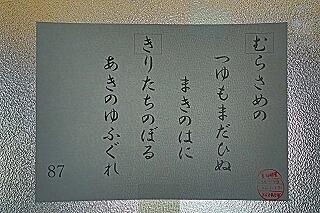 むらさめの
つゆもまだひぬ
まきのはに
きりたちのぼる
あきのゆふぐれ
87